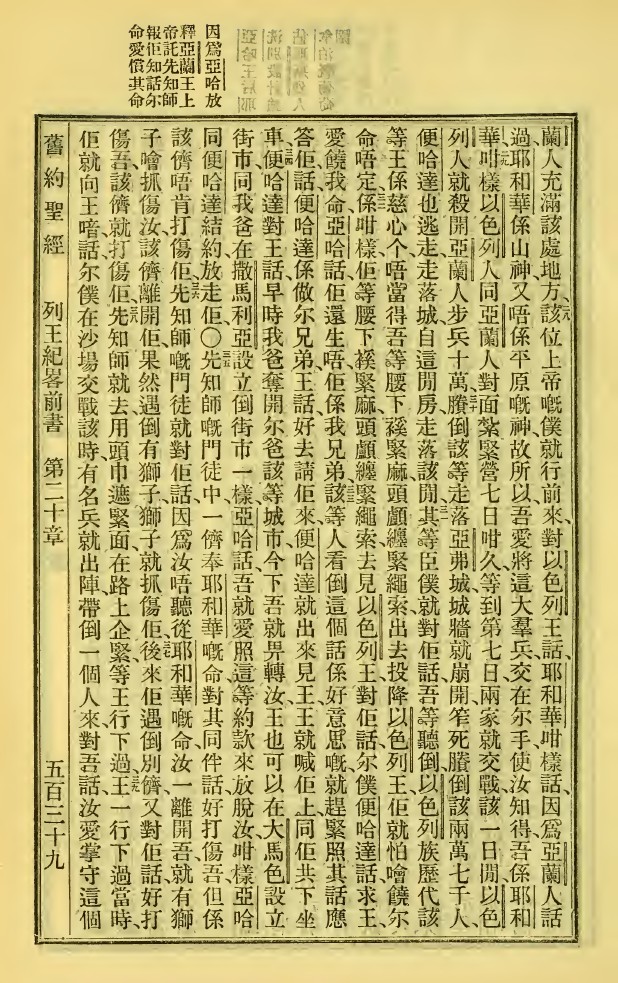 因爲亞哈放
釋亞蘭王上
帝託先知師
報佢知話尔
命愛償其命
蘭人充滿該處地方、該位上帝嘅僕就行前來、對以色列王話、耶和華咁樣話、因爲亞蘭人話
過耶和華係山神、又唔係平原嘅神、故所以吾愛將這大羣兵交在尔手、使汝知得吾係耶和
華咁樣以色列人同亞蘭人對面紮緊營七日咁久、等到第七日兩家就交戰、該一日間以色
列人就殺開亞蘭人步兵十萬、賸倒該等走落亞弗城、城牆就崩開、笮死賸倒該兩萬七千人、
便哈達也逃走、走落城自這間房走落該間、其等臣僕就對佢話、吾等聽倒以色列族歷代該
等王係慈心个、唔當得吾等腰下𧙕緊麻、頭顱纏緊繩索、出去投降以色列王、佢就怕噲饒尔
命唔定、係咁樣佢等腰下𧙕緊麻、頭顱纏緊繩索、去見以色列王、對佢話、尔僕便哈達話、求王
愛饒我命、亞哈話、佢還生唔、佢係我兄弟、該等人看倒這個話係好意思嘅、就趕緊照其話應
答佢話、便哈達係做尔兄弟、王話、好去請佢來、便哈達就出來見王、王就喊佢上同佢共下坐
車、便哈達對王話、早時我爸奪開尔爸該等城市、今下吾就畀轉汝、王也可以在大馬色設立
街市、同我爸在撒馬利亞設立倒街市一樣、亞哈話、吾就愛照這等約款來放脫汝、咁樣亞哈
同便哈達結約放走佢〇先知師嘅門徒中一儕、奉耶和華嘅命、對其同伴話、好打傷吾、但係
該儕唔肯打傷佢、先知師嘅門徒就對佢話、因爲汝唔聽從耶和華嘅命、汝一離開吾就有獅
子噲抓傷汝、該儕離開佢、果然遇倒有獅子、獅子就抓傷佢、後來佢遇倒別儕、又對佢話、好打
傷吾、該儕就打傷佢、先知師就去用頭巾遮緊面、在路上企緊等王行下過、王一行下過當時、
佢就向王喑話、尔僕在沙場交戰該時、有名兵就出陣帶倒一個人來對吾話、汝愛掌守這個
舊約聖經　列王紀畧前書　第二十章　五百三十九